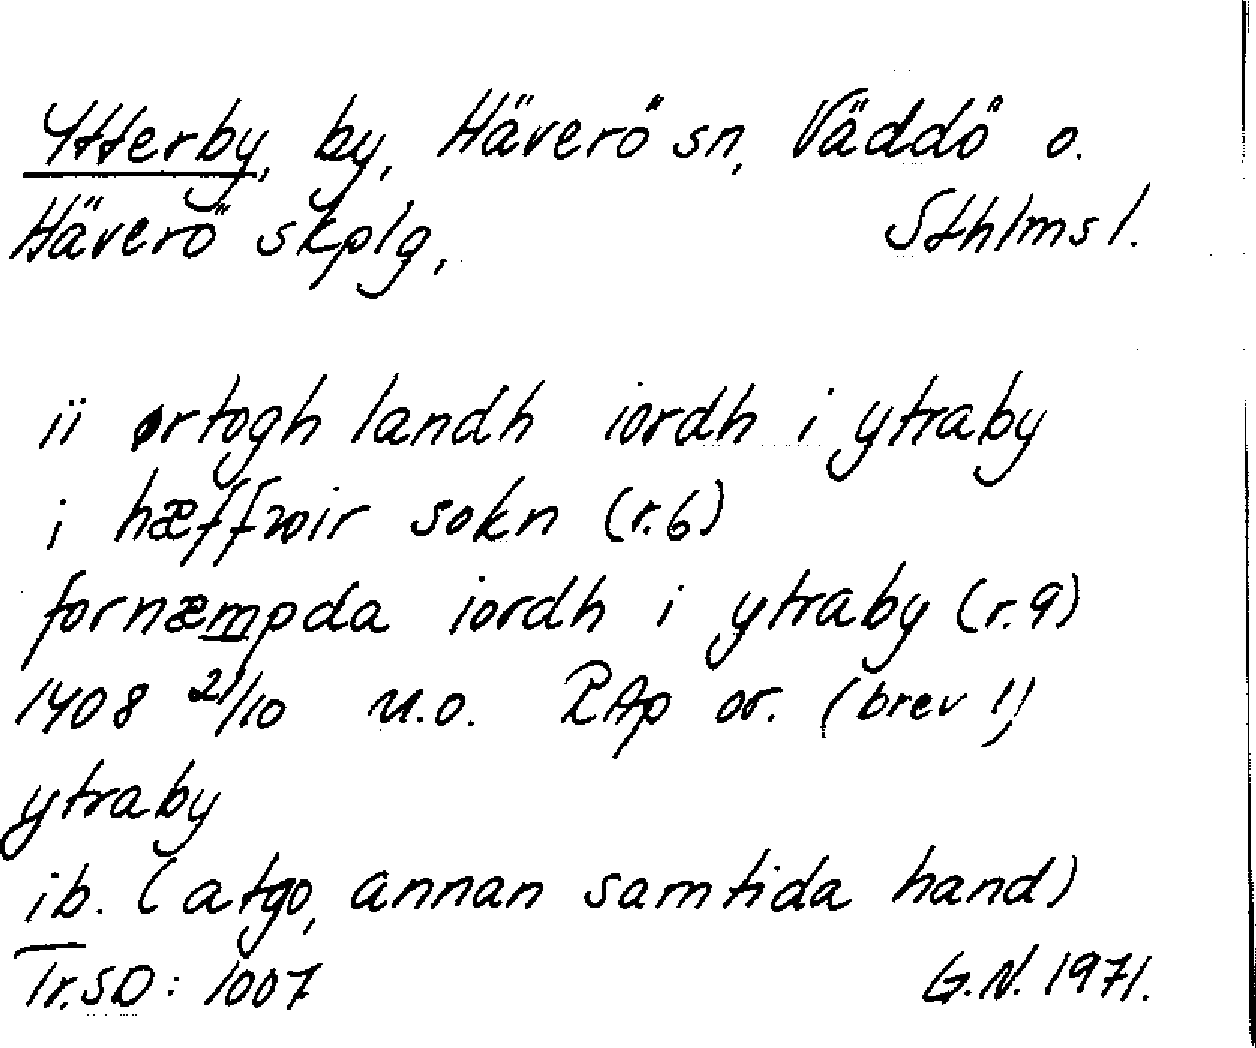 Ytterby, by, Häverö sn, Väddö o.
Häverö skplg, Sthlms l.
ii ortogh landh iordh i ytraby
i hæffwir sokn (r.6)
fornæmpda iordh i ytraby (r.9)
1408 21/10 u.o. RAp or. (brev 1)
ytraby
ib. (atgo, annan samtida hand)
Tr. SD: 1007 G.N. 1971.